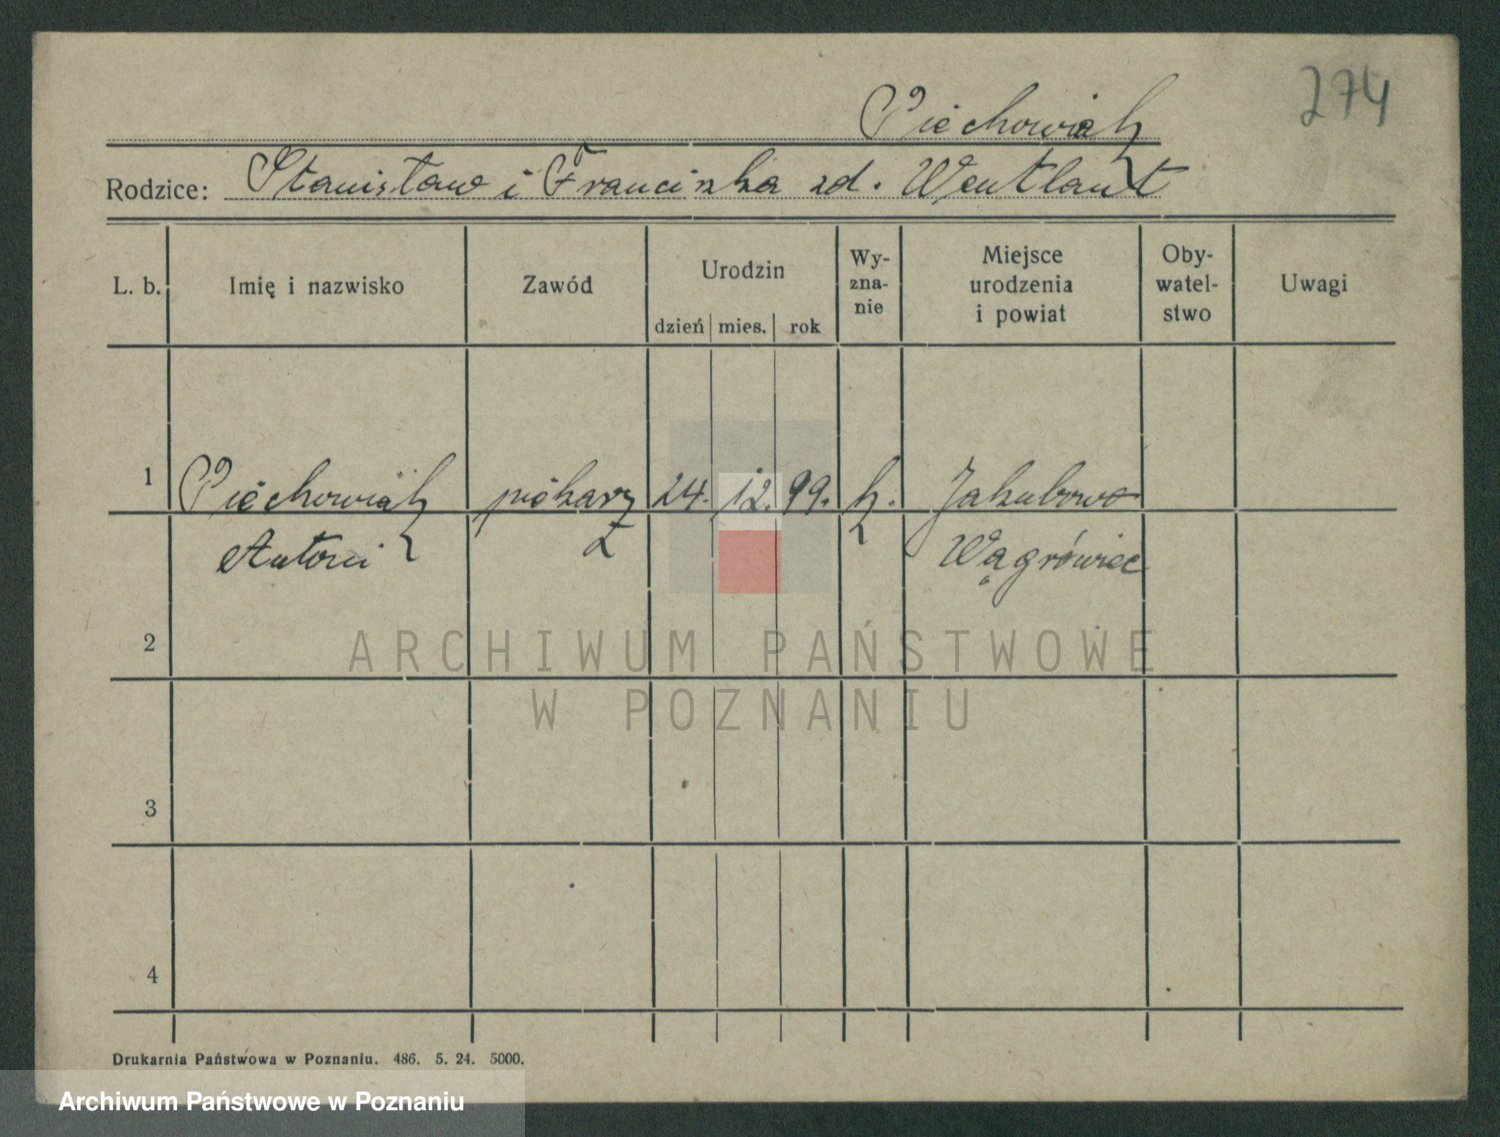 274
Piechowiak
Rodzice: Stanisław i Franciszka zd. Wentlant
L. b.
Imię i nazwisko
Zawód
Urodzin
dzień mies. rok
Wy-
zna-
nie
Miejsce
urodzenia
i powiat
Oby-
watel-
stwo
Uwagi
1 Piechowiak piekarz 24. 12. 99. k. Jakubowo
Antoni Wągrówiec
2
ARCHIWUM PAŃSTWOWE
W POZNANIU
3
4
Drukarnia Państwowa w Poznaniu. 486. 5. 24. 5000.
Archiwum Państwowe w Poznaniu